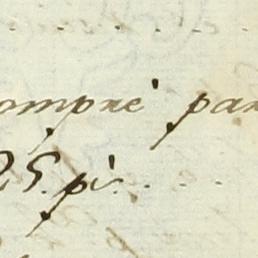 ompré par
25 pi. . . .